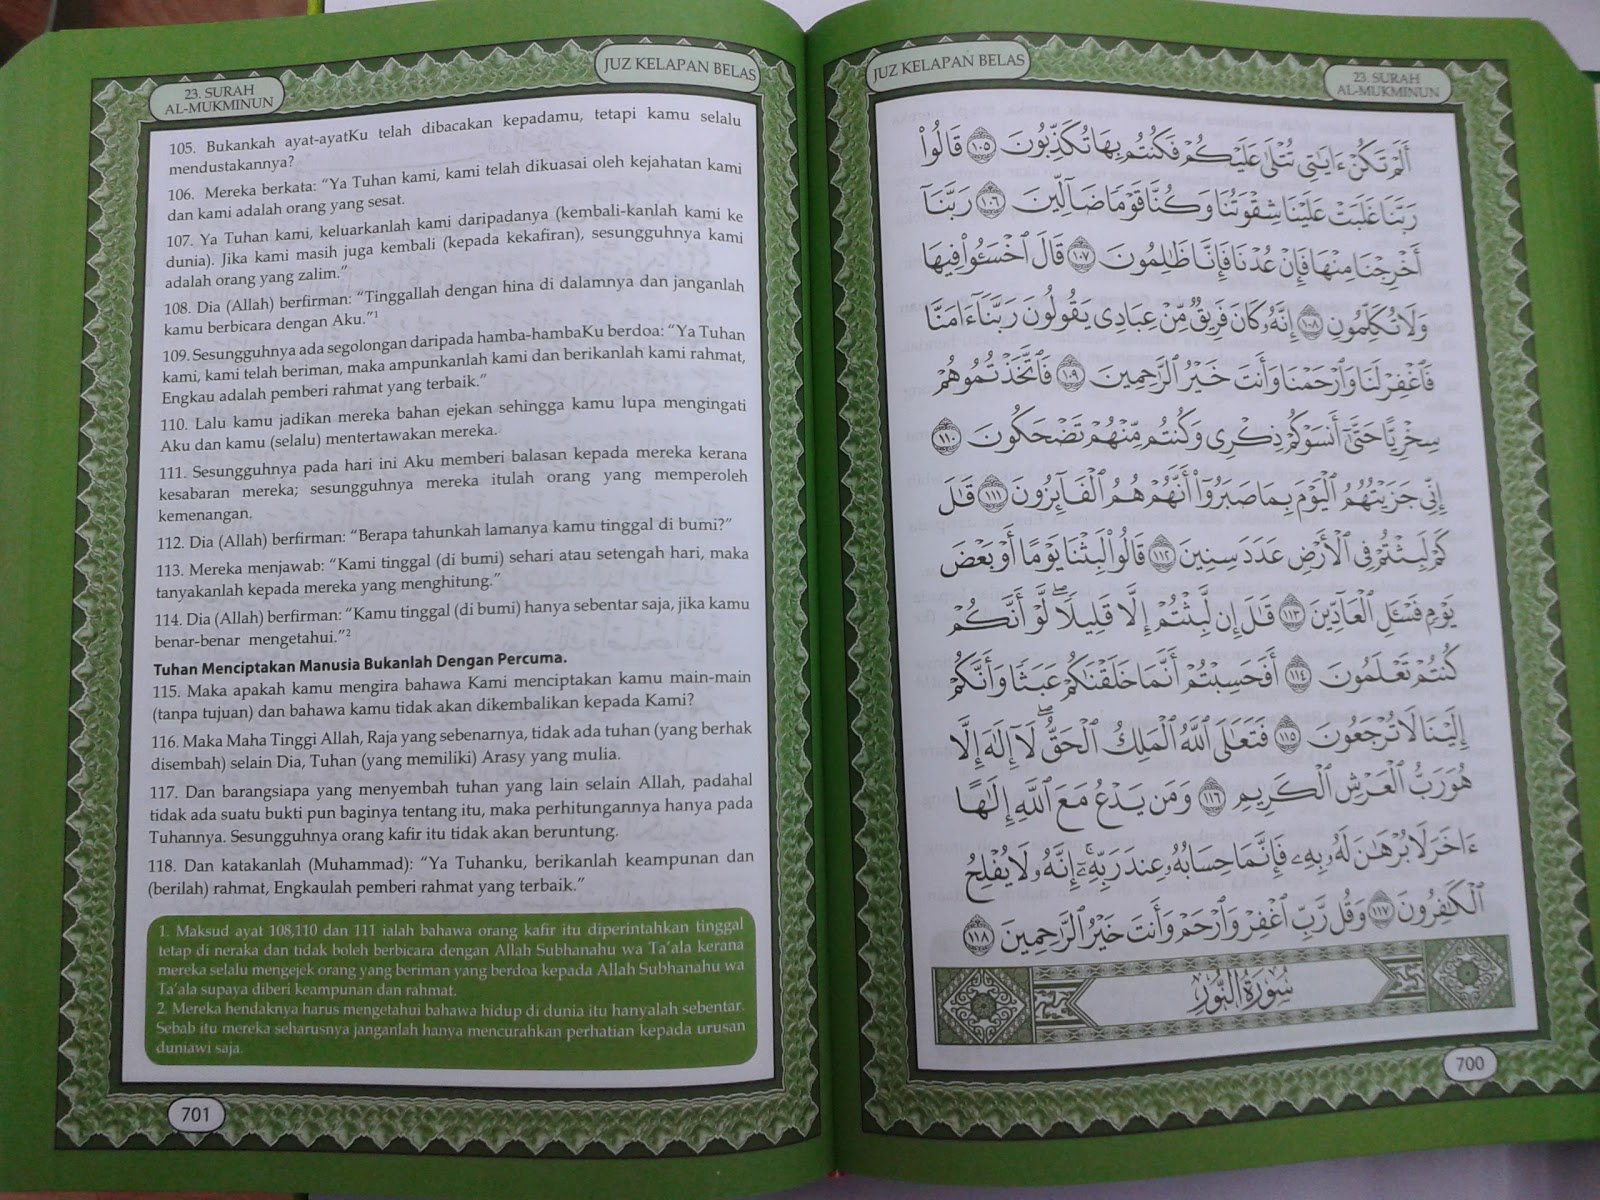 23. SURAH
AL-MUKMINUN
JUZ KELAPAN BELAS
105. Bukankah ayat-ayatKu telah dibacakan kepadamu, tetapi kamu selalu
mendustakannya?
106. Mereka berkata: “Ya Tuhan kami, kami telah dikuasai oleh kejahatan kami
dan kami adalah orang yang sesat.
107. Ya Tuhan kami, keluarkanlah kami daripadanya (kembali-kanlah kami ke
dunia). Jika kami masih juga kembali (kepada kekafiran), sesungguhnya kami
adalah orang yang zalim.”
108. Dia (Allah) berfirman: “Tinggallah dengan hina di dalamnya dan janganlah
kamu berbicara dengan Aku.”1
109. Sesungguhnya ada segolongan daripada hamba-hambaKu berdoa: “Ya Tuhan
kami, kami telah beriman, maka ampunkanlah kami dan berikanlah kami rahmat,
Engkau adalah pemberi rahmat yang terbaik.”
110. Lalu kamu jadikan mereka bahan ejekan sehingga kamu lupa mengingati
Aku dan kamu (selalu) mentertawakan mereka.
111. Sesungguhnya pada hari ini Aku memberi balasan kepada mereka kerana
kesabaran mereka; sesungguhnya mereka itulah orang yang memperoleh
kemenangan.
112. Dia (Allah) berfirman: “Berapa tahunkah lamanya kamu tinggal di bumi?”
113. Mereka menjawab: “Kami tinggal (di bumi) sehari atau setengah hari, maka
tanyakanlah kepada mereka yang menghitung.”
114. Dia (Allah) berfirman: “Kamu tinggal (di bumi) hanya sebentar saja, jika kamu
benar-benar mengetahui.”2
Tuhan Menciptakan Manusia Bukanlah Dengan Percuma.
115. Maka apakah kamu mengira bahawa Kami menciptakan kamu main-main
(tanpa tujuan) dan bahawa kamu tidak akan dikembalikan kepada Kami?
116. Maka Maha Tinggi Allah, Raja yang sebenarnya, tidak ada tuhan (yang berhak
disembah) selain Dia, Tuhan (yang memiliki) Arasy yang mulia.
117. Dan barangsiapa yang menyembah tuhan yang lain selain Allah, padahal
tidak ada suatu bukti pun baginya tentang itu, maka perhitungannya hanya pada
Tuhannya. Sesungguhnya orang kafir itu tidak akan beruntung.
118. Dan katakanlah (Muhammad): “Ya Tuhanku, berikanlah keampunan dan
(berilah) rahmat, Engkaulah pemberi rahmat yang terbaik.”
1. Maksud ayat 108,110 dan 111 ialah bahawa orang kafir itu diperintahkan tinggal
tetap di neraka dan tidak boleh berbicara dengan Allah Subhanahu wa Ta'ala kerana
mereka selalu mengejek orang yang beriman yang berdoa kepada Allah Subhanahu wa
Ta'ala supaya diberi keampunan dan rahmat.
2. Mereka hendaknya harus mengetahui bahawa hidup di dunia itu hanyalah sebentar.
Sebab itu mereka seharusnya janganlah hanya mencurahkan perhatian kepada urusan
duniawi saja.
701
JUZ KELAPAN BELAS
23. SURAH
AL-MUKMINUN
أَلَمْ تَكُنْ ءَايَٰتِى تُتْلَىٰ عَلَيْكُمْ فَكُنتُم بِهَا تُكَذِّبُونَ ١٠٥ قَالُوا۟
رَبَّنَا غَلَبَتْ عَلَيْنَا شِقْوَتُنَا وَكُنَّا قَوْمًا ضَآلِّينَ ١٠٦ رَبَّنَآ
أَخْرِجْنَا مِنْهَا فَإِنْ عُدْنَا فَإِنَّا ظَٰلِمُونَ ١٠٧ قَالَ ٱخْسَـُٔوا۟ فِيهَا
وَلَا تُكَلِّمُونِ ١٠٨ إِنَّهُۥ كَانَ فَرِيقٌ مِّنْ عِبَادِى يَقُولُونَ رَبَّنَآ ءَامَنَّا
فَٱغْفِرْ لَنَا وَٱرْحَمْنَا وَأَنتَ خَيْرُ ٱلرَّٰحِمِينَ ١٠٩ فَٱتَّخَذْتُمُوهُمْ
سِخْرِيًّا حَتَّىٰٓ أَنسَوْكُمْ ذِكْرِى وَكُنتُم مِّنْهُمْ تَضْحَكُونَ ١١٠
إِنِّى جَزَيْتُهُمُ ٱلْيَوْمَ بِمَا صَبَرُوٓا۟ أَنَّهُمْ هُمُ ٱلْفَآئِزُونَ ١١١ قَٰلَ
كَمْ لَبِثْتُمْ فِى ٱلْأَرْضِ عَدَدَ سِنِينَ ١١٢ قَالُوا۟ لَبِثْنَا يَوْمًا أَوْ بَعْضَ
يَوْمٍ فَسْـَٔلِ ٱلْعَآدِّينَ ١١٣ قَٰلَ إِن لَّبِثْتُمْ إِلَّا قَلِيلًا ۖ لَّوْ أَنَّكُمْ
كُنتُمْ تَعْلَمُونَ ١١٤ أَفَحَسِبْتُمْ أَنَّمَا خَلَقْنَٰكُمْ عَبَثًا وَأَنَّكُمْ
إِلَيْنَا لَا تُرْجَعُونَ ١١٥ فَتَعَٰلَى ٱللَّهُ ٱلْمَلِكُ ٱلْحَقُّ ۖ لَآ إِلَٰهَ إِلَّا
هُوَ رَبُّ ٱلْعَرْشِ ٱلْكَرِيمِ ١١٦ وَمَن يَدْعُ مَعَ ٱللَّهِ إِلَٰهًا
ءَاخَرَ لَا بُرْهَٰنَ لَهُۥ بِهِۦ فَإِنَّمَا حِسَابُهُۥ عِندَ رَبِّهِۦٓ ۚ إِنَّهُۥ لَا يُفْلِحُ
ٱلْكَٰفِرُونَ ١١٧ وَقُل رَّبِّ ٱغْفِرْ وَٱرْحَمْ وَأَنتَ خَيْرُ ٱلرَّٰحِمِينَ ١١٨
سُورَةُ النُّورِ
700